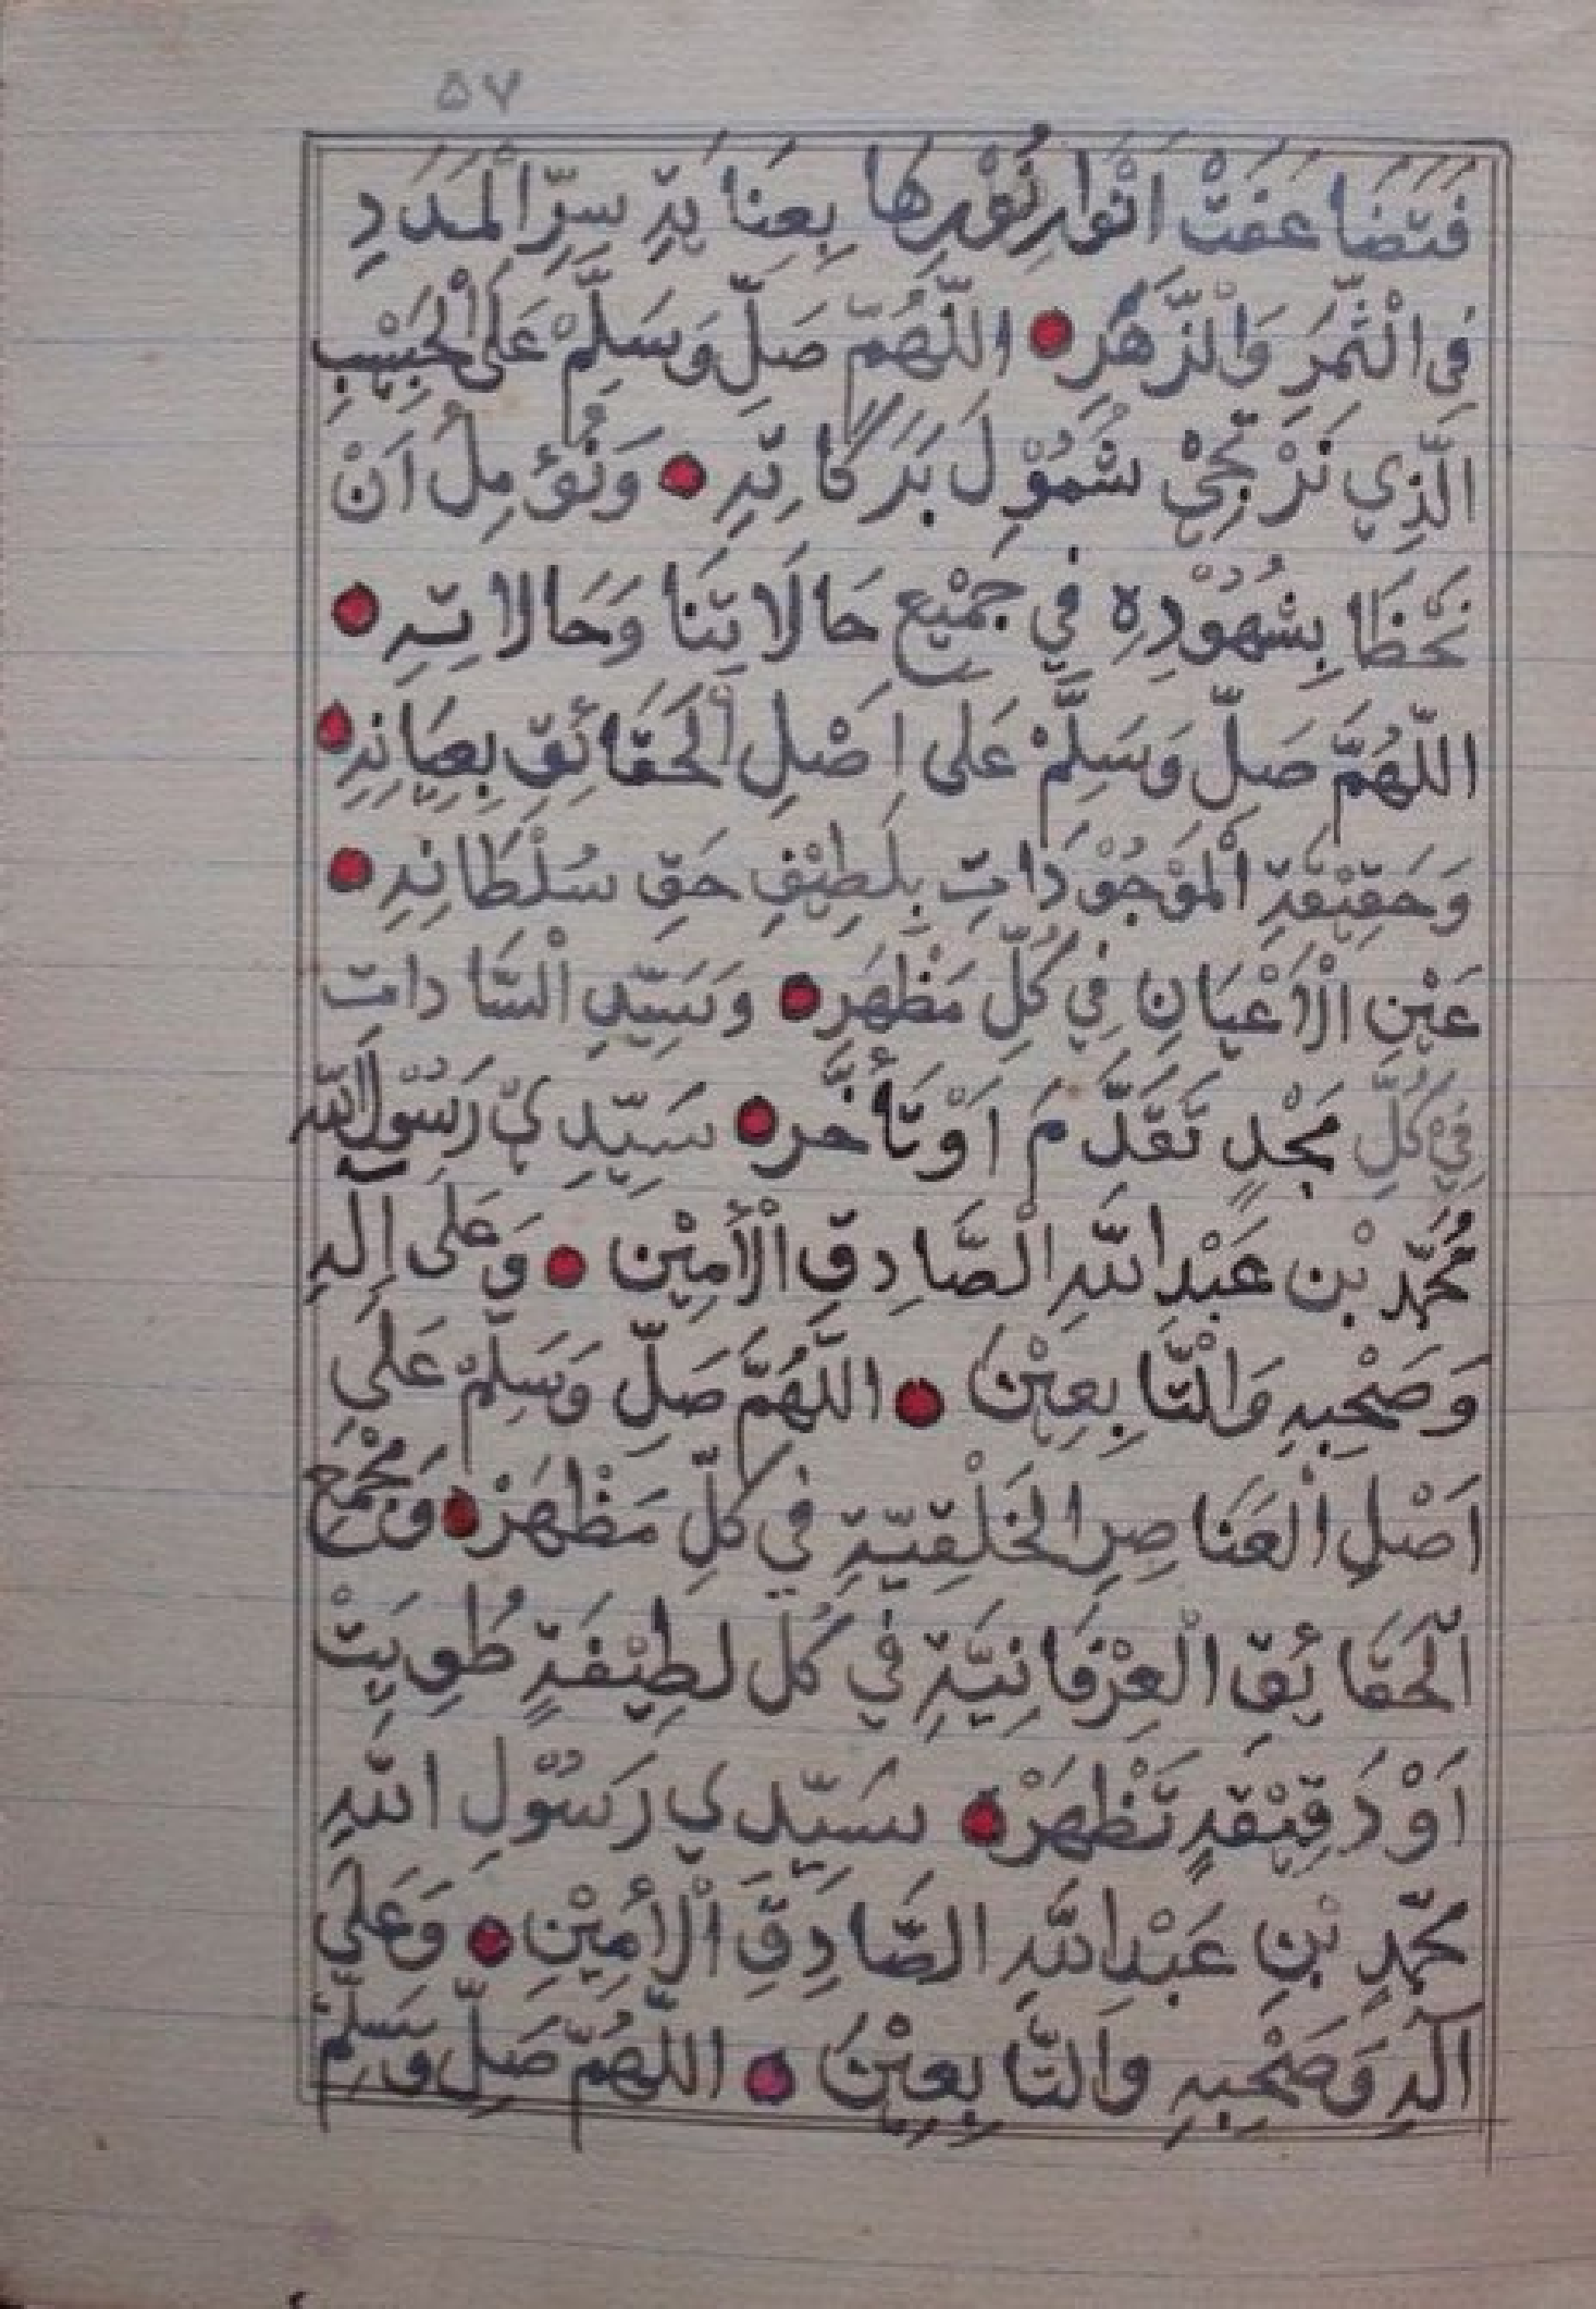 ۵۷
فَتَضَاعَفَتْ اَنْوَارِ نُوْرِهَا بِعِنَايَةِ سِرِّ الْمَدَدِ
فِي الْثَّمَرِ وَالْزَّهْرِ ● اللّٰهُمَّ صَلِّ وَسَلِّمْ عَلَى الْحَبِيْبِ
الَّذِي نَرْتَجِيْ شُمُوْلَ بَرَكَاتِهِ ● وَنُؤَمِلُ اَنْ
نَحْظَا بِشُهُوْدِهِ فِي جَمِيْعِ حَالَاتِنَا وَحَالَاتِهِ ●
اللّٰهُمَّ صَلِّ وَسَلِّمْ عَلَى اَصْلِ الْحَقَائِقِ بِصِيَانِهِ ●
وَحَقِيْقَةِ الْمَوْجُوْدَاتِ بِلَطِيْفِ حَقِ سُلْطَانِهِ ●
عَيْنِ الْأَعْيَانِ فِي كُلِّ مَظْهَرِ ● وَسَيِّدِ الْسَّادَاتِ
فِيْ كُلِّ مَجْدٍ تَقَدَّمَ اَوْ تَأَخَّر ● سَيِّدِيْ رَسُوْلِ اللّٰه
مُحَمَّد بْن عَبْدِ اللّٰهِ الْصَّادِقِ الْأَمِيْن ● وَعَلَى اٰلِهِ
وَصَحْبِهِ وَالْتَّابِعِيْنَ ● اللّٰهُمَّ صَلِّ وَسَلِّمْ عَلَى
اَصْلِ الْعَنَاصِرِ الخَلْقِيَّةِ فِي كُلِّ مَظْهَرْ ● وَمَجْمَعِ
الْحَقَائِقِ الْعِرْفَانِيَّةِ فِي كُل لَطِيْفَةٍ طُوِيَتْ
اَوْ دَقِيْقَةٍ تَظْهَرْ ● سَيِّدِي رَسُوْلِ اللّٰهِ
مُحَمَّدِ بْنِ عَبْدِ اللّٰهِ الصَّادِقِ الْأَمِيْنِ ● وَعَلَى
اٰلِهِ وَصَحْبِهِ وَالتَّابِعِيْنَ ● اللّٰهُمَّ صَلِّ وَسَلِّمْ